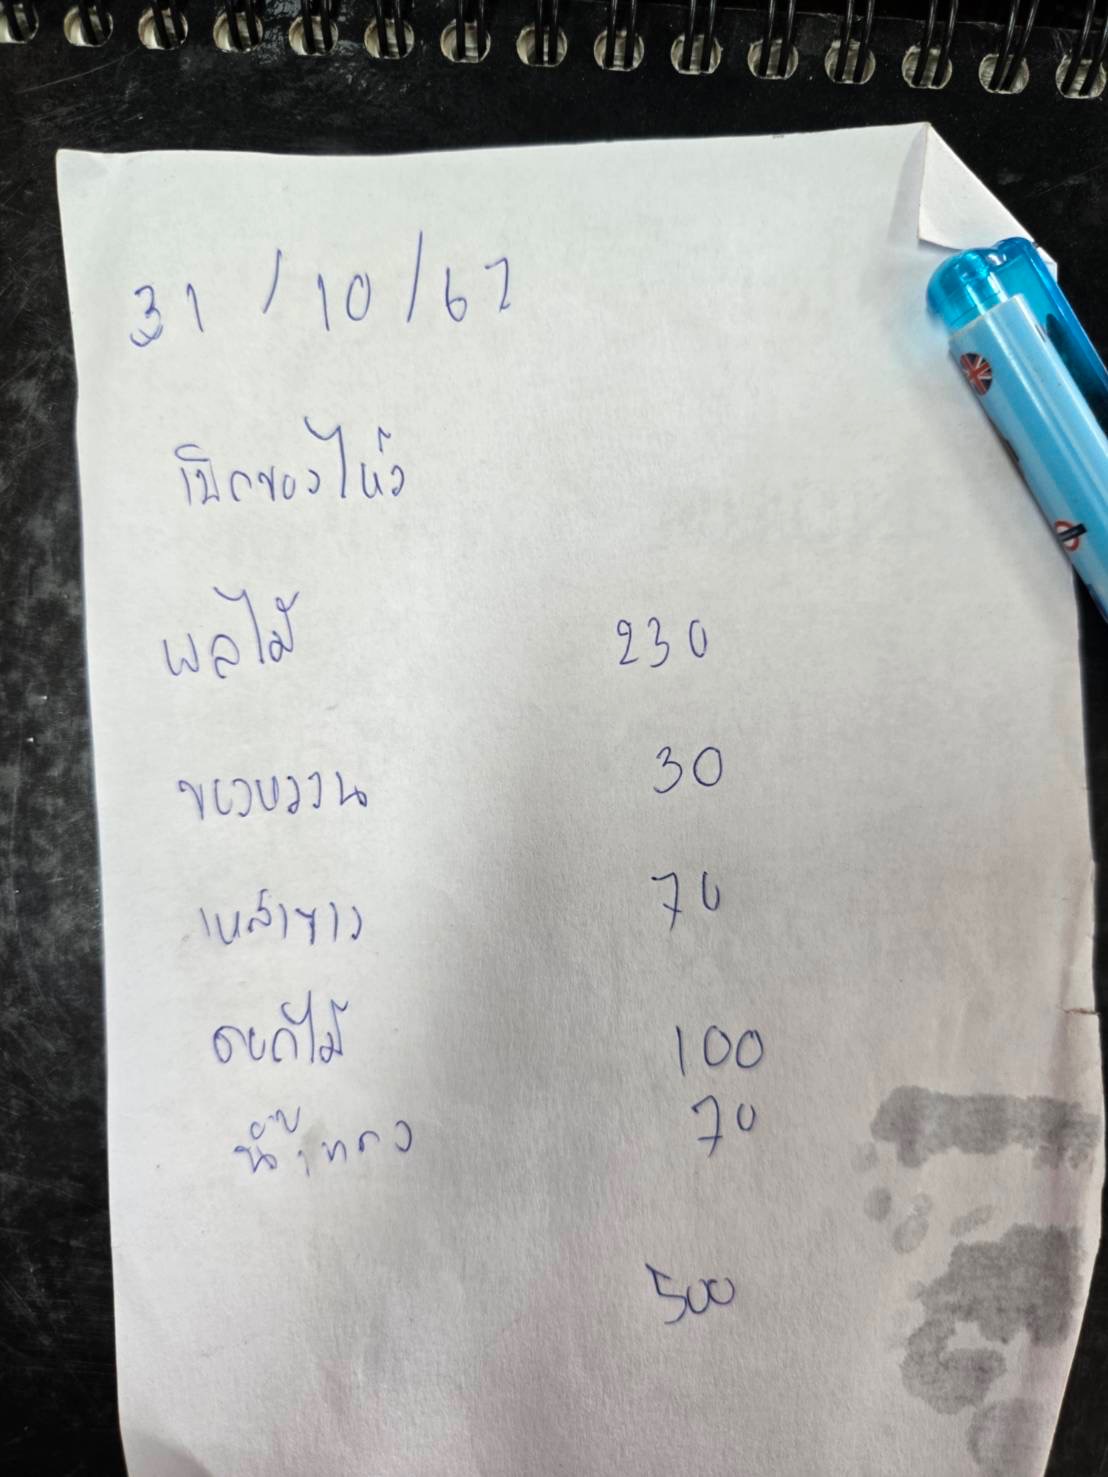 31 / 10 / 67
เบิกของไหว้
ผลไม้ 230
ของหวาน 30
เหล้าขาว 70
ดอกไม้ 100
70
500